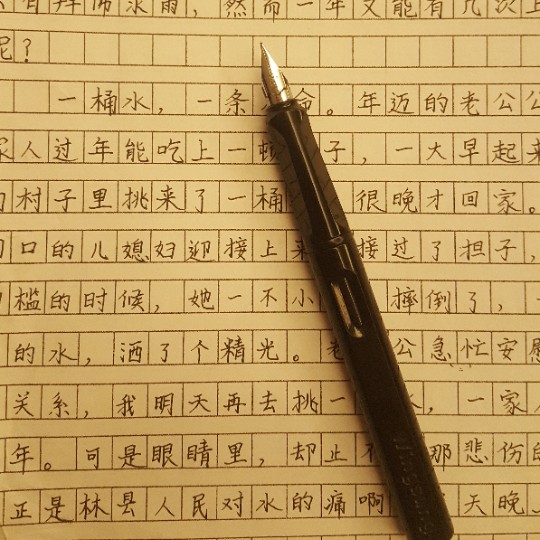 有拜佛求雨，然而一年又能有几次上
呢？
一桶水，一条 命。年迈的老公公
家人过年能吃上一顿 子，一大早起来
的村子里挑来了一桶 很晚才回家。
口的儿媳妇迎接上来 接过了担子，
槛的时候，她一不小 摔倒了，一
的水，洒了个精光。老 公急忙安慰
关系，我明天再去挑一 水，一家人
年。可是眼睛里，却止不 那悲伤的
正是林县人民对水的痛啊 天晚上